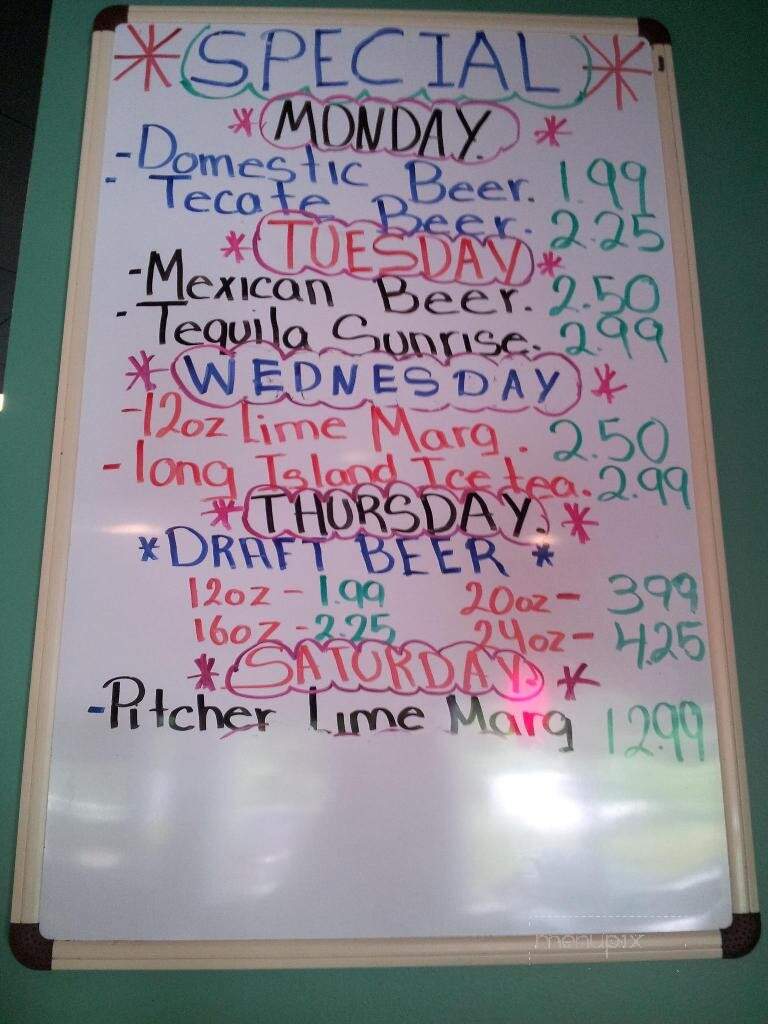 * SPECIAL *
* MONDAY. *
- Domestic Beer. 1.99
- Tecate Beer. 2.25
* TUESDAY *
- Mexican Beer. 2.50
- Tequila Sunrise. 2.99
* WEDNESDAY *
- 12oz lime Marg. 2.50
- long Island Ice tea. 2.99
* THURSDAY. *
* DRAFT BEER *
12oz - 1.99 20oz - 399
16oz - 2.25 24oz - 4.25
* SATURDAY. *
- Pitcher Lime Marg 12.99
menupix